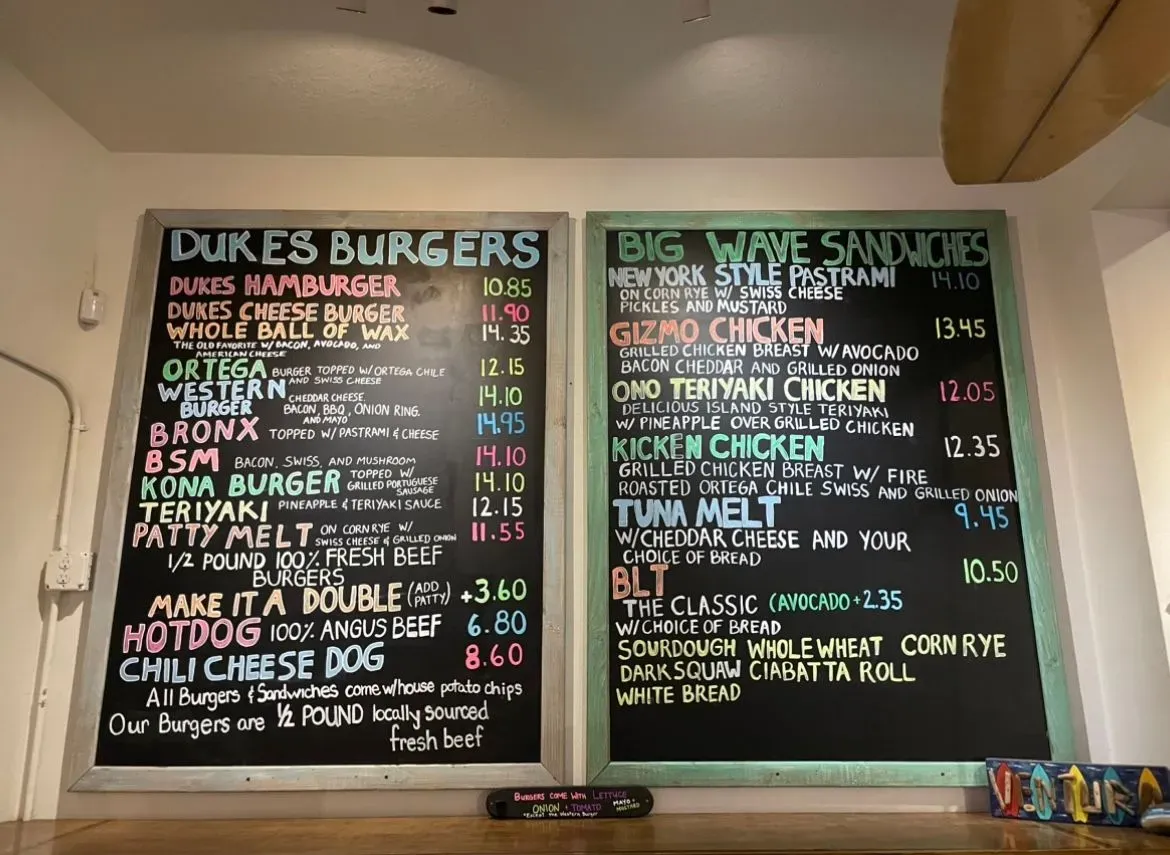 DUKES BURGERS
DUKES HAMBURGER 10.85
DUKES CHEESE BURGER 11.90
WHOLE BALL OF WAX 14.35
THE OLD FAVORITE W/ BACON, AVOCADO, AND
AMERICAN CHEESE
ORTEGA BURGER TOPPED W/ ORTEGA CHILE 12.15
AND SWISS CHEESE
WESTERN CHEDDAR CHEESE, 14.10
BURGER BACON, BBQ, ONION RING,
AND MAYO
BRONX TOPPED W/ PASTRAMI & CHEESE 14.95
BSM BACON, SWISS, AND MUSHROOM 14.10
KONA BURGER TOPPED W/ 14.10
GRILLED PORTUGUESE
SAUSAGE
TERIYAKI PINEAPPLE & TERIYAKI SAUCE 12.15
PATTY MELT ON CORN RYE W/ 11.55
SWISS CHEESE & GRILLED ONION
1/2 POUND 100% FRESH BEEF
BURGERS
MAKE IT A DOUBLE (ADD PATTY) +3.60
HOTDOG 100% ANGUS BEEF 6.80
CHILI CHEESE DOG 8.60
All Burgers & Sandwiches come w/house potato chips
Our Burgers are 1/2 POUND locally sourced
fresh beef
BIG WAVE SANDWICHES
NEW YORK STYLE PASTRAMI 14.10
ON CORN RYE W/ SWISS CHEESE
PICKLES AND MUSTARD
GIZMO CHICKEN 13.45
GRILLED CHICKEN BREAST W/ AVOCADO
BACON CHEDDAR AND GRILLED ONION
ONO TERIYAKI CHICKEN 12.05
DELICIOUS ISLAND STYLE TERIYAKI
W/ PINEAPPLE OVER GRILLED CHICKEN
KICKEN CHICKEN 12.35
GRILLED CHICKEN BREAST W/ FIRE
ROASTED ORTEGA CHILE SWISS AND GRILLED ONION
TUNA MELT 9.45
W/CHEDDAR CHEESE AND YOUR
CHOICE OF BREAD
BLT 10.50
THE CLASSIC (AVOCADO +2.35
W/CHOICE OF BREAD
SOURDOUGH WHOLE WHEAT CORN RYE
DARK SQUAW CIABATTA ROLL
WHITE BREAD
BURGERS COME WITH LETTUCE
ONION + TOMATO MAYO + MUSTARD
*Except the Western Burger
VENTURA